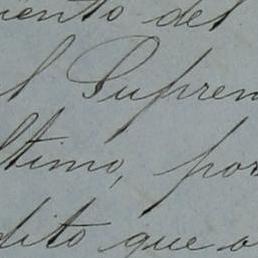 iento del
l Suprem
ltimo, por
dito que a